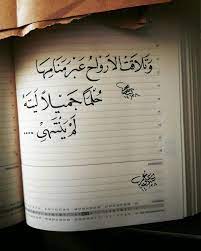 وَتَلاقَتْ الأَرْوَاحُ عَبْرَ مَنَامِهَا
حُلْمًا جَمِيلاً لَيْتَهُ
لَمْ يَنْتَهِي ....